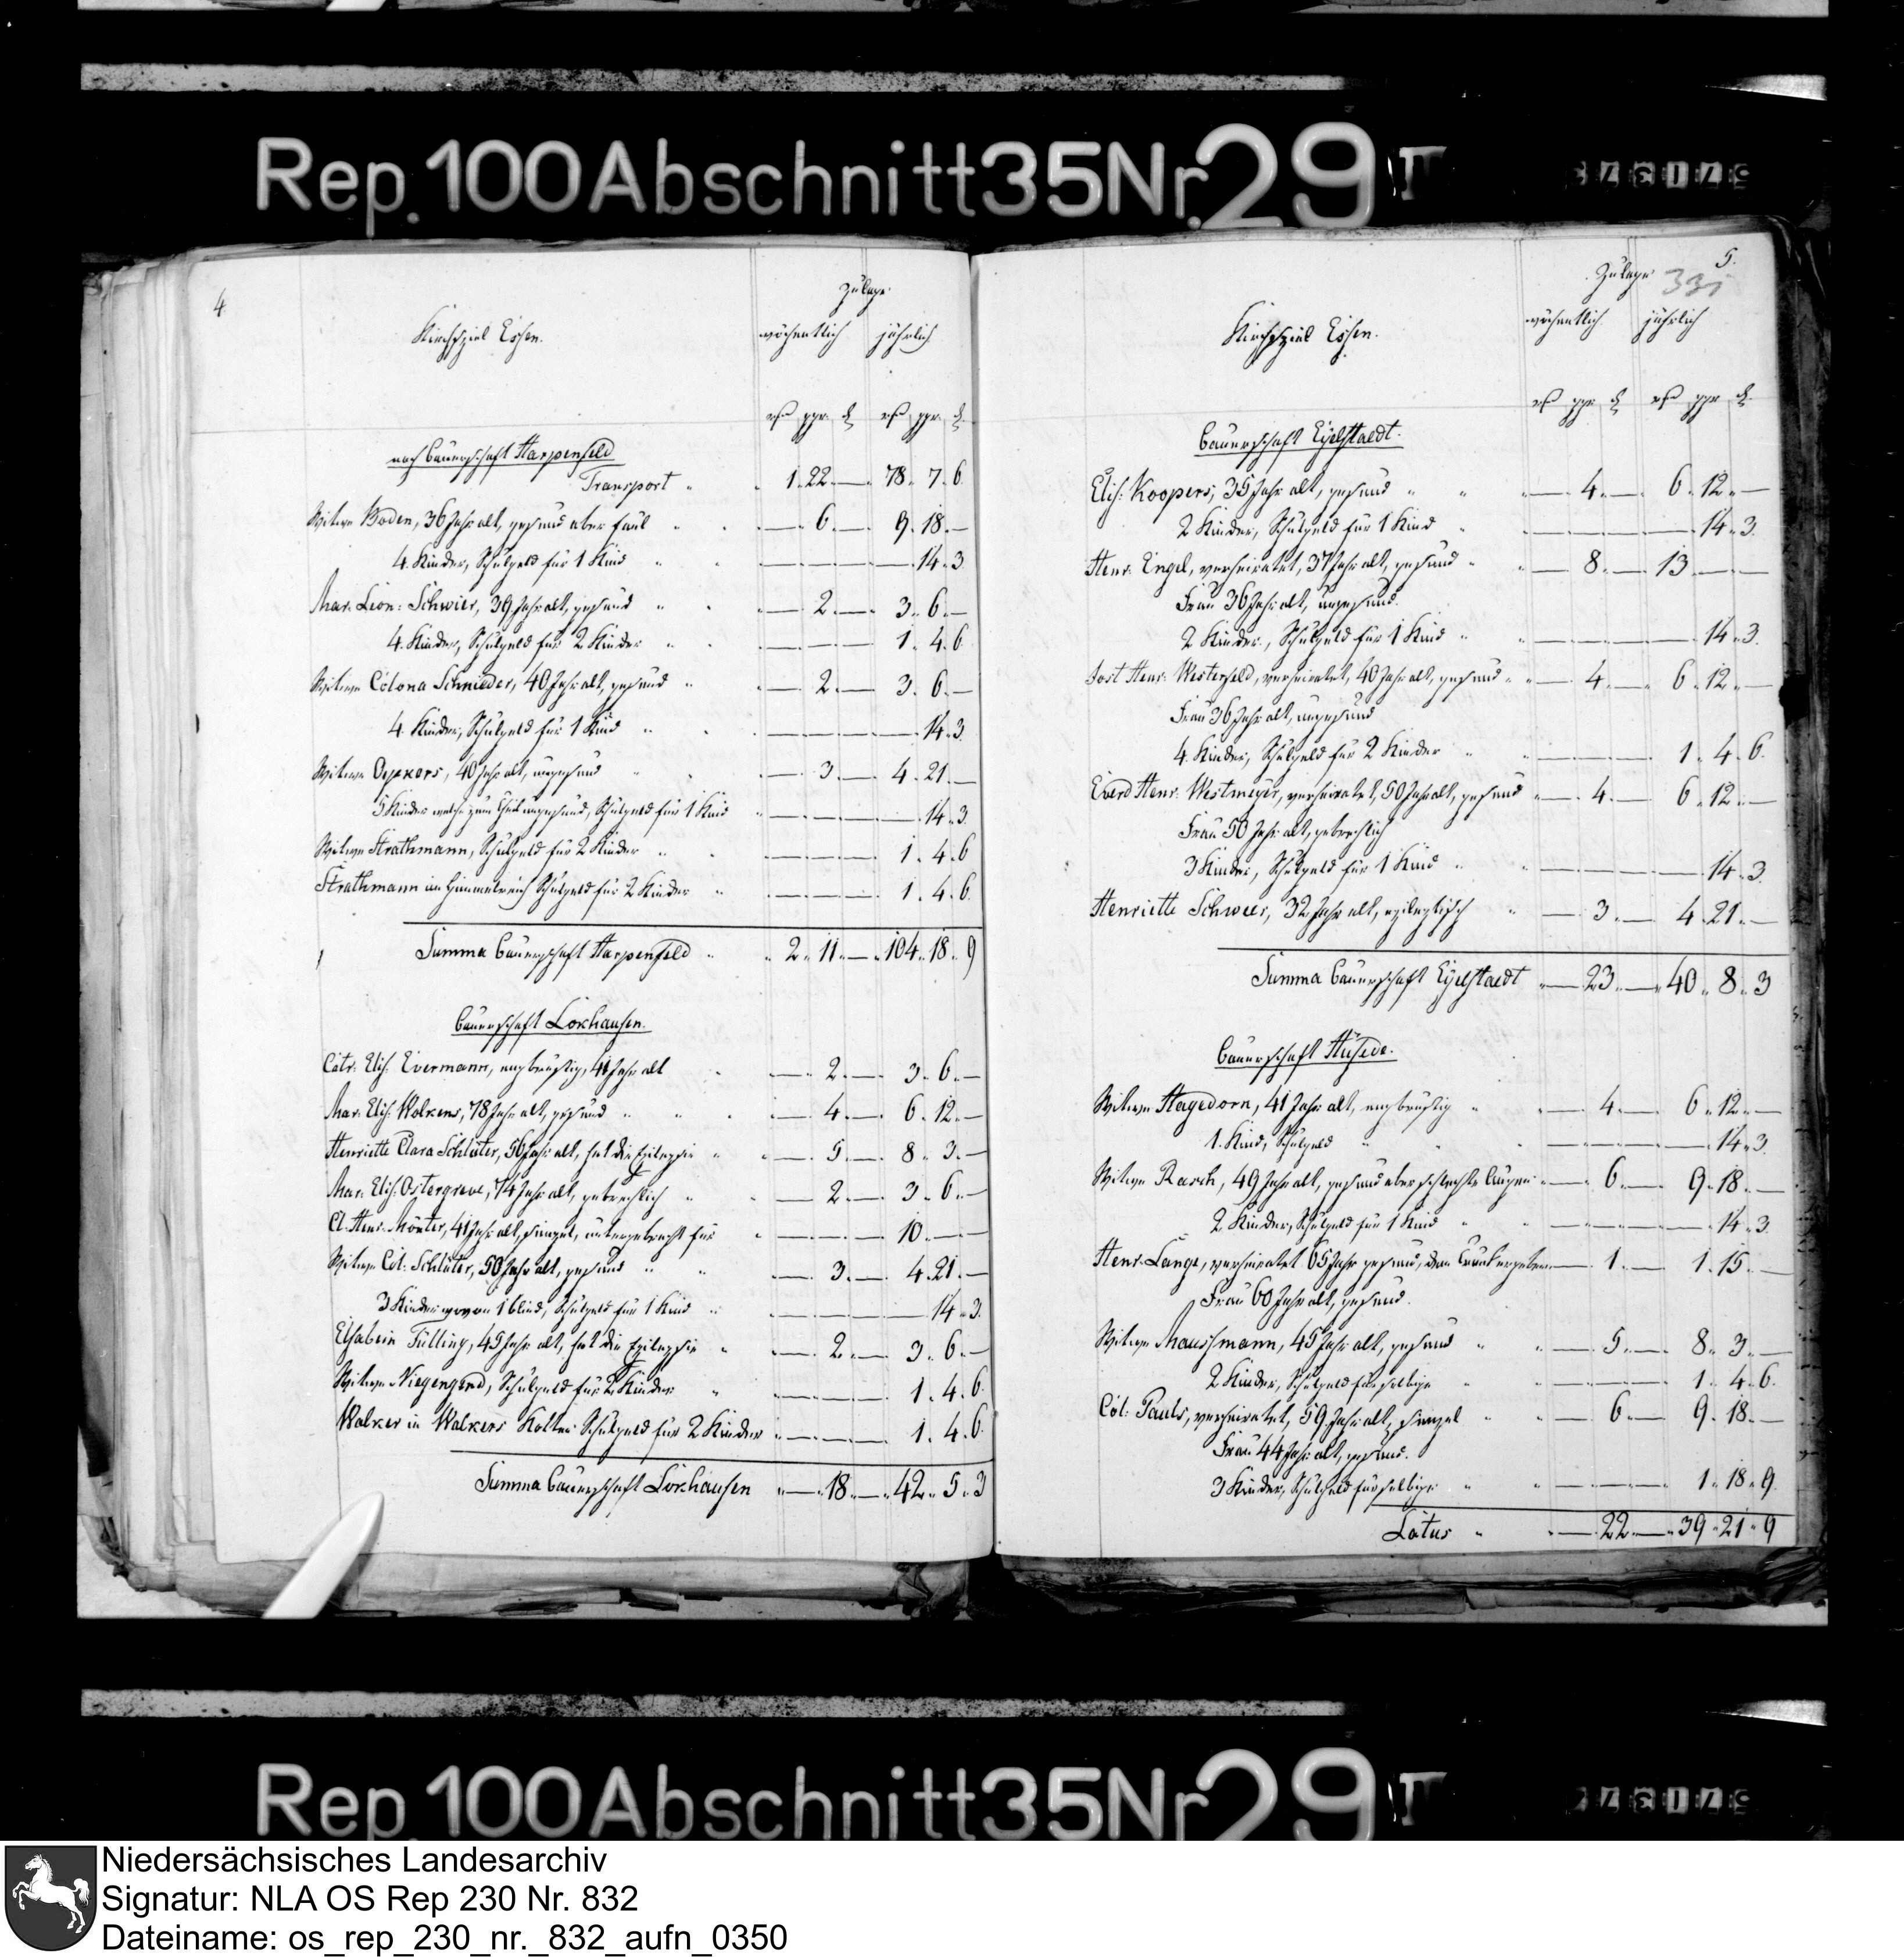 Rep. 100 Abschnitt 35 Nr. 29 II
4
Kirchspiel Essen.
Zulage
wöchentlich jährlich
rt ggr. d. rt ggr. d.
noch Bauerschaft Harpenfeld
Transport " " 1. 22. — 78. 7. 6
Witwe Boden, 36 Jahr alt, gesund aber faul " — 6. — 9. 18. —
4. Kinder, Schulgeld für 1 Kind " " — — — — 14. 3
Mar. Leon: Schwier, 39 Jahr alt, gesund " " — 2. — 3. 6. —
4. Kinder, Schulgeld für 2 Kinder " — — — 1. 4. 6
Witwe Colona Schnieder, 40 Jahr alt, gesund " — 2. — 3. 6. —
4. Kinder, Schulgeld für 1 Kind " — — — — 14. 3
Witwe 40 Jahr alt, ungesund " — 3. — 4. 21. —
5 Kinder welche zum Theil ungesund, Schulgeld für 1 Kind — — — — 14. 3
Witwe Strathmann, Schulgeld für 2 Kinder " — — — 1. 4. 6
Strathmann im Himmelreich Schulgeld für 2 Kinder " — — — 1. 4. 6
Summa Bauerschaft Harpenfeld " " 2. 11. — 104. 18. 9
Bauerschaft Lockhausen.
Catr. Elis. Evermann, engbrüstig, 41 Jahr alt " — 2. — 3. 6. —
Mar. Elis. Wolkens, 78 Jahr alt, gesund " " — 4. — 6. 12. —
Henriette Clara Schluter, 56 Jahr alt, hat die Epilepsie " — 5. — 8. 3. —
Mar. Elis. Ostergreve, 74 Jahr alt, gebrechlich " — 2. — 3. 6. —
Cl. Henr. Mönter, 41 Jahr alt, simpel, untergebracht für " — — — 10. — —
Witwe Col. Schlüter, 50 Jahr alt, gesund " " — 3. — 4. 21. —
3 Kinder wovon 1 blind, Schulgeld für 1 Kind " — — — — 14. 3
Elsabein Fülling, 45 Jahr alt, hat die Epilepsie " — 2. — 3. 6. —
Witwe Niegengerd, Schulgeld für 2 Kinder " — — — 1. 4. 6
Walker in Walkers Kotten Schulgeld für 2 Kinder — — — 1. 4. 6
Summa Bauerschaft Lockhausen " — 18. — 42. 5. 3
5.
331
Kirchspiel Essen.
Zulage
wöchentlich jährlich
rt ggr d. rt ggr d.
Bauerschaft Eyelstaedt.
Elis. Koopers, 35 Jahr alt, gesund " " — 4. — 6. 12. —
2 Kinder, Schulgeld für 1 Kind " — — — — 14. 3.
Henr. Engel, verheiratet, 37 Jahr alt, gesund " — 8. — 13. — —
Frau 36 Jahr alt, ungesund.
2 Kinder, Schulgeld für 1 Kind " — — — — 14. 3.
Jost Henr. Westerfeld, verheiratet, 40 Jahr alt, gesund " — 4. — 6. 12. —
Frau 36 Jahr alt, ungesund
4. Kinder, Schulgeld für 2 Kinder " — — — 1. 4. 6.
Everd Henr. Westmeyer, verheiratet, 50 Jahr alt, gesund — 4. — 6. 12. —
Frau 50 Jahr alt, gebrechlich
3 Kinder, Schulgeld für 1 Kind " — — — — 14. 3
Henriette Schwees, 32 Jahr alt, epileptisch " — 3. — 4. 21. —
Summa Bauerschaft Eyelstaedt " — 23. — 40. 8. 3
Bauerschaft Hüsede.
Witwe Hagedorn, 41 Jahr alt, engbrüstig " — 4. — 6. 12. —
1. Kind, Schulgeld " — — — — 14. 3.
Witwe Rasch, 49 Jahr alt, gesund aber schlechte Augen — 6. — 9. 18. —
2 Kinder, Schulgeld für 1 Kind " — — — — 14. 3
Henr. Lange, verheiratet 65 Jahr gesund, dem Trunk ergeben — 1. — 1. 15. —
Frau 60 Jahr alt, gesund.
Witwe Haussmann, 45 Jahr alt, gesund " — 5. — 8. 3. —
2 Kinder, Schulgeld für selbige " — — — 1. 4. 6.
Col. Pauls, verheiratet, 59 Jahr alt, simpel " — 6. — 9. 18. —
Frau 44 Jahr alt, gesund.
3 Kinder, Schulgeld für selbige " — — — 1. 18. 9.
Latus " — 22. — 39. 21. 9
Rep. 100 Abschnitt 35 Nr. 29 II
Niedersächsisches Landesarchiv
Signatur: NLA OS Rep 230 Nr. 832
Dateiname: os_rep_230_nr._832_aufn_0350